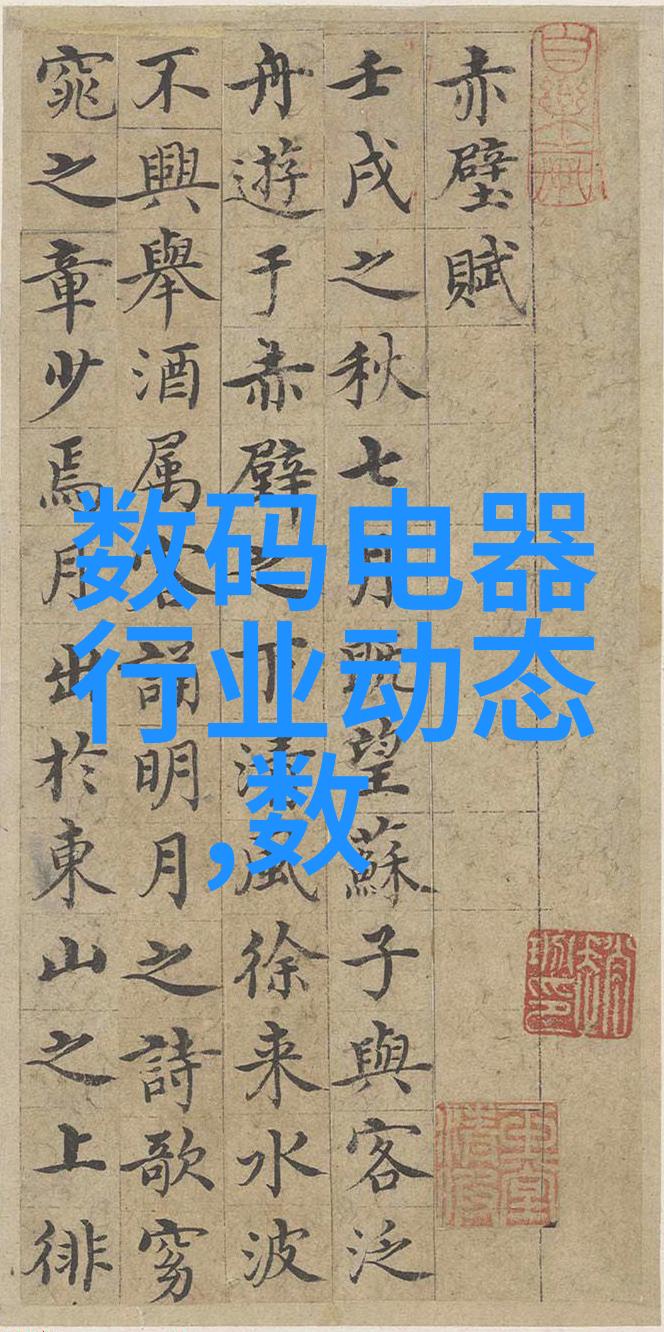 赤壁賦
壬戌之秋七月既望蘇子與客泛
舟遊于赤壁之下清風徐来水波
不興舉酒属客誦明月之詩歌窈
窕之章少焉月出於東山之上徘
数码电器
行业动态
,数